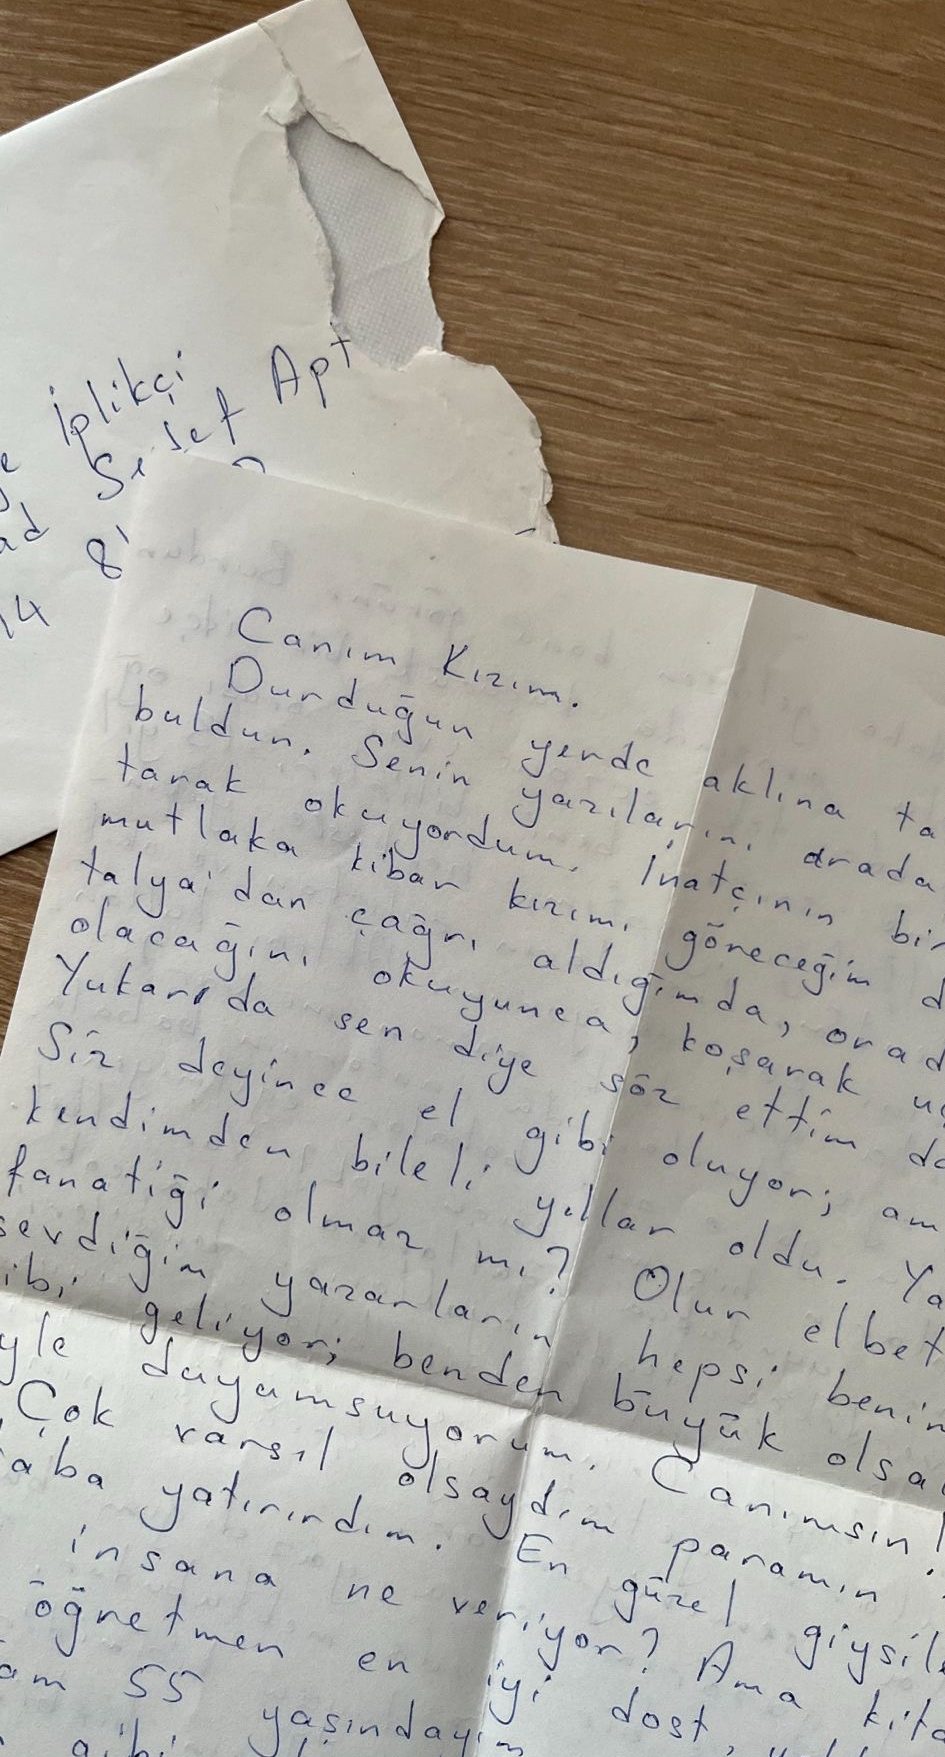 İplikçi
Seset Apt
ad
14 8
Canım Kızım.
Durduğun yerde aklına ta
buldun. Senin yazıların, arada
tarak okuyordum. İnatçının bir
mutlaka kibar kızımı göreceğim d
talya'dan çağrı aldığımda, orad
olacağını okuyunca, koşarak uç
Yukarıda sen diye söz ettim da
Siz deyince el gibi oluyor; am
kendimden bileli yıllar oldu. Ya
fanatiği olmaz mı? Olur elbet
sevdiğim yazarların hepsi benim
ibi geliyor; benden büyük olsa
yle duyumsuyorum. Canımsın!
Çok varsıl olsaydım paramın
aba yatırırdım. En güzel giysile
insana ne veriyor? Ama kita
öğretmen en iyi dost,
am 55 yaşındayım
gibi